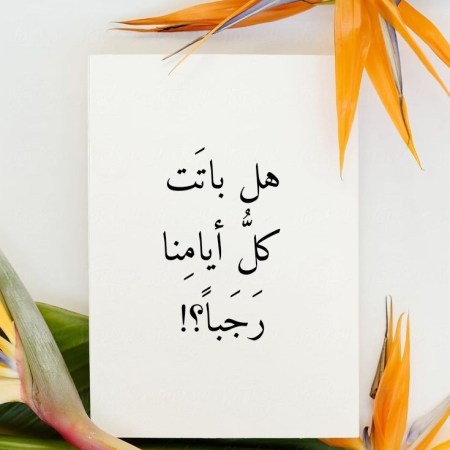 هل باتَت
كلُّ أيامِنا
رَجَباً؟!